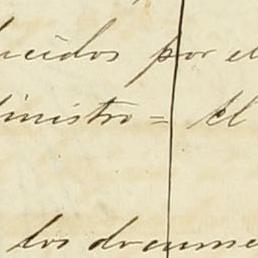 ucidos por el
inistro = El
los docume